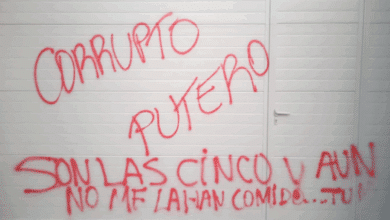 CORRUPTO
PUTERO
SON LAS CINCO Y AUN
NO ME LA HAN COMIDO...TU